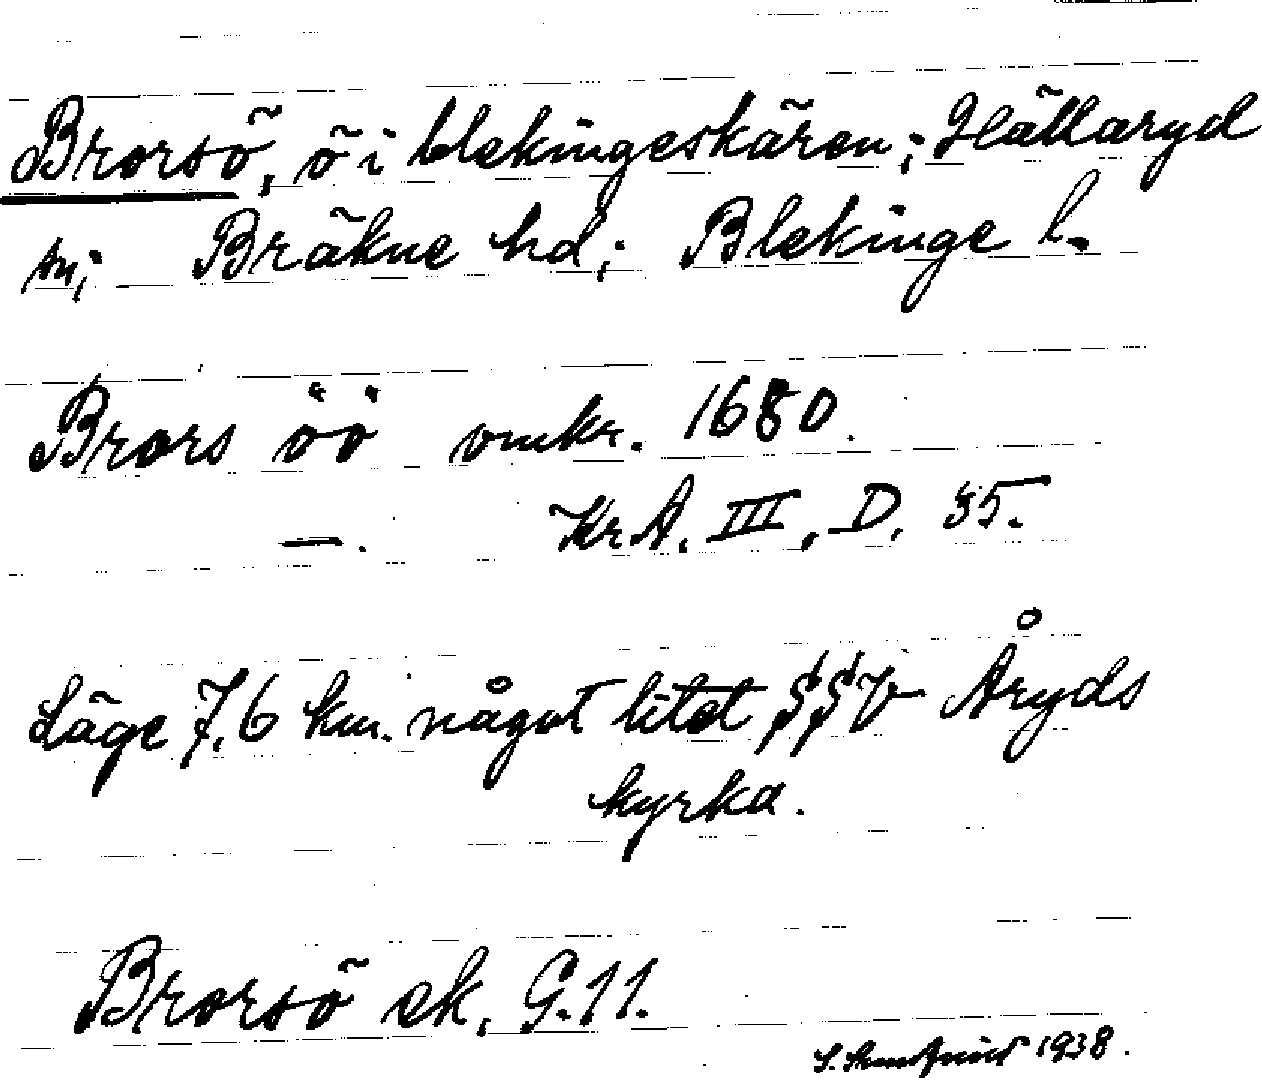 Brorsö, ö i blekingeskären; Hällaryd
sn; Bräkne hd; Blekinge l.
Brors öö omkr. 1680.
—. KrA. III, D. 35.
Läge 7,6 km. något litet SSV Åryds
kyrka.
Brorsö ek. G.11.
1938.